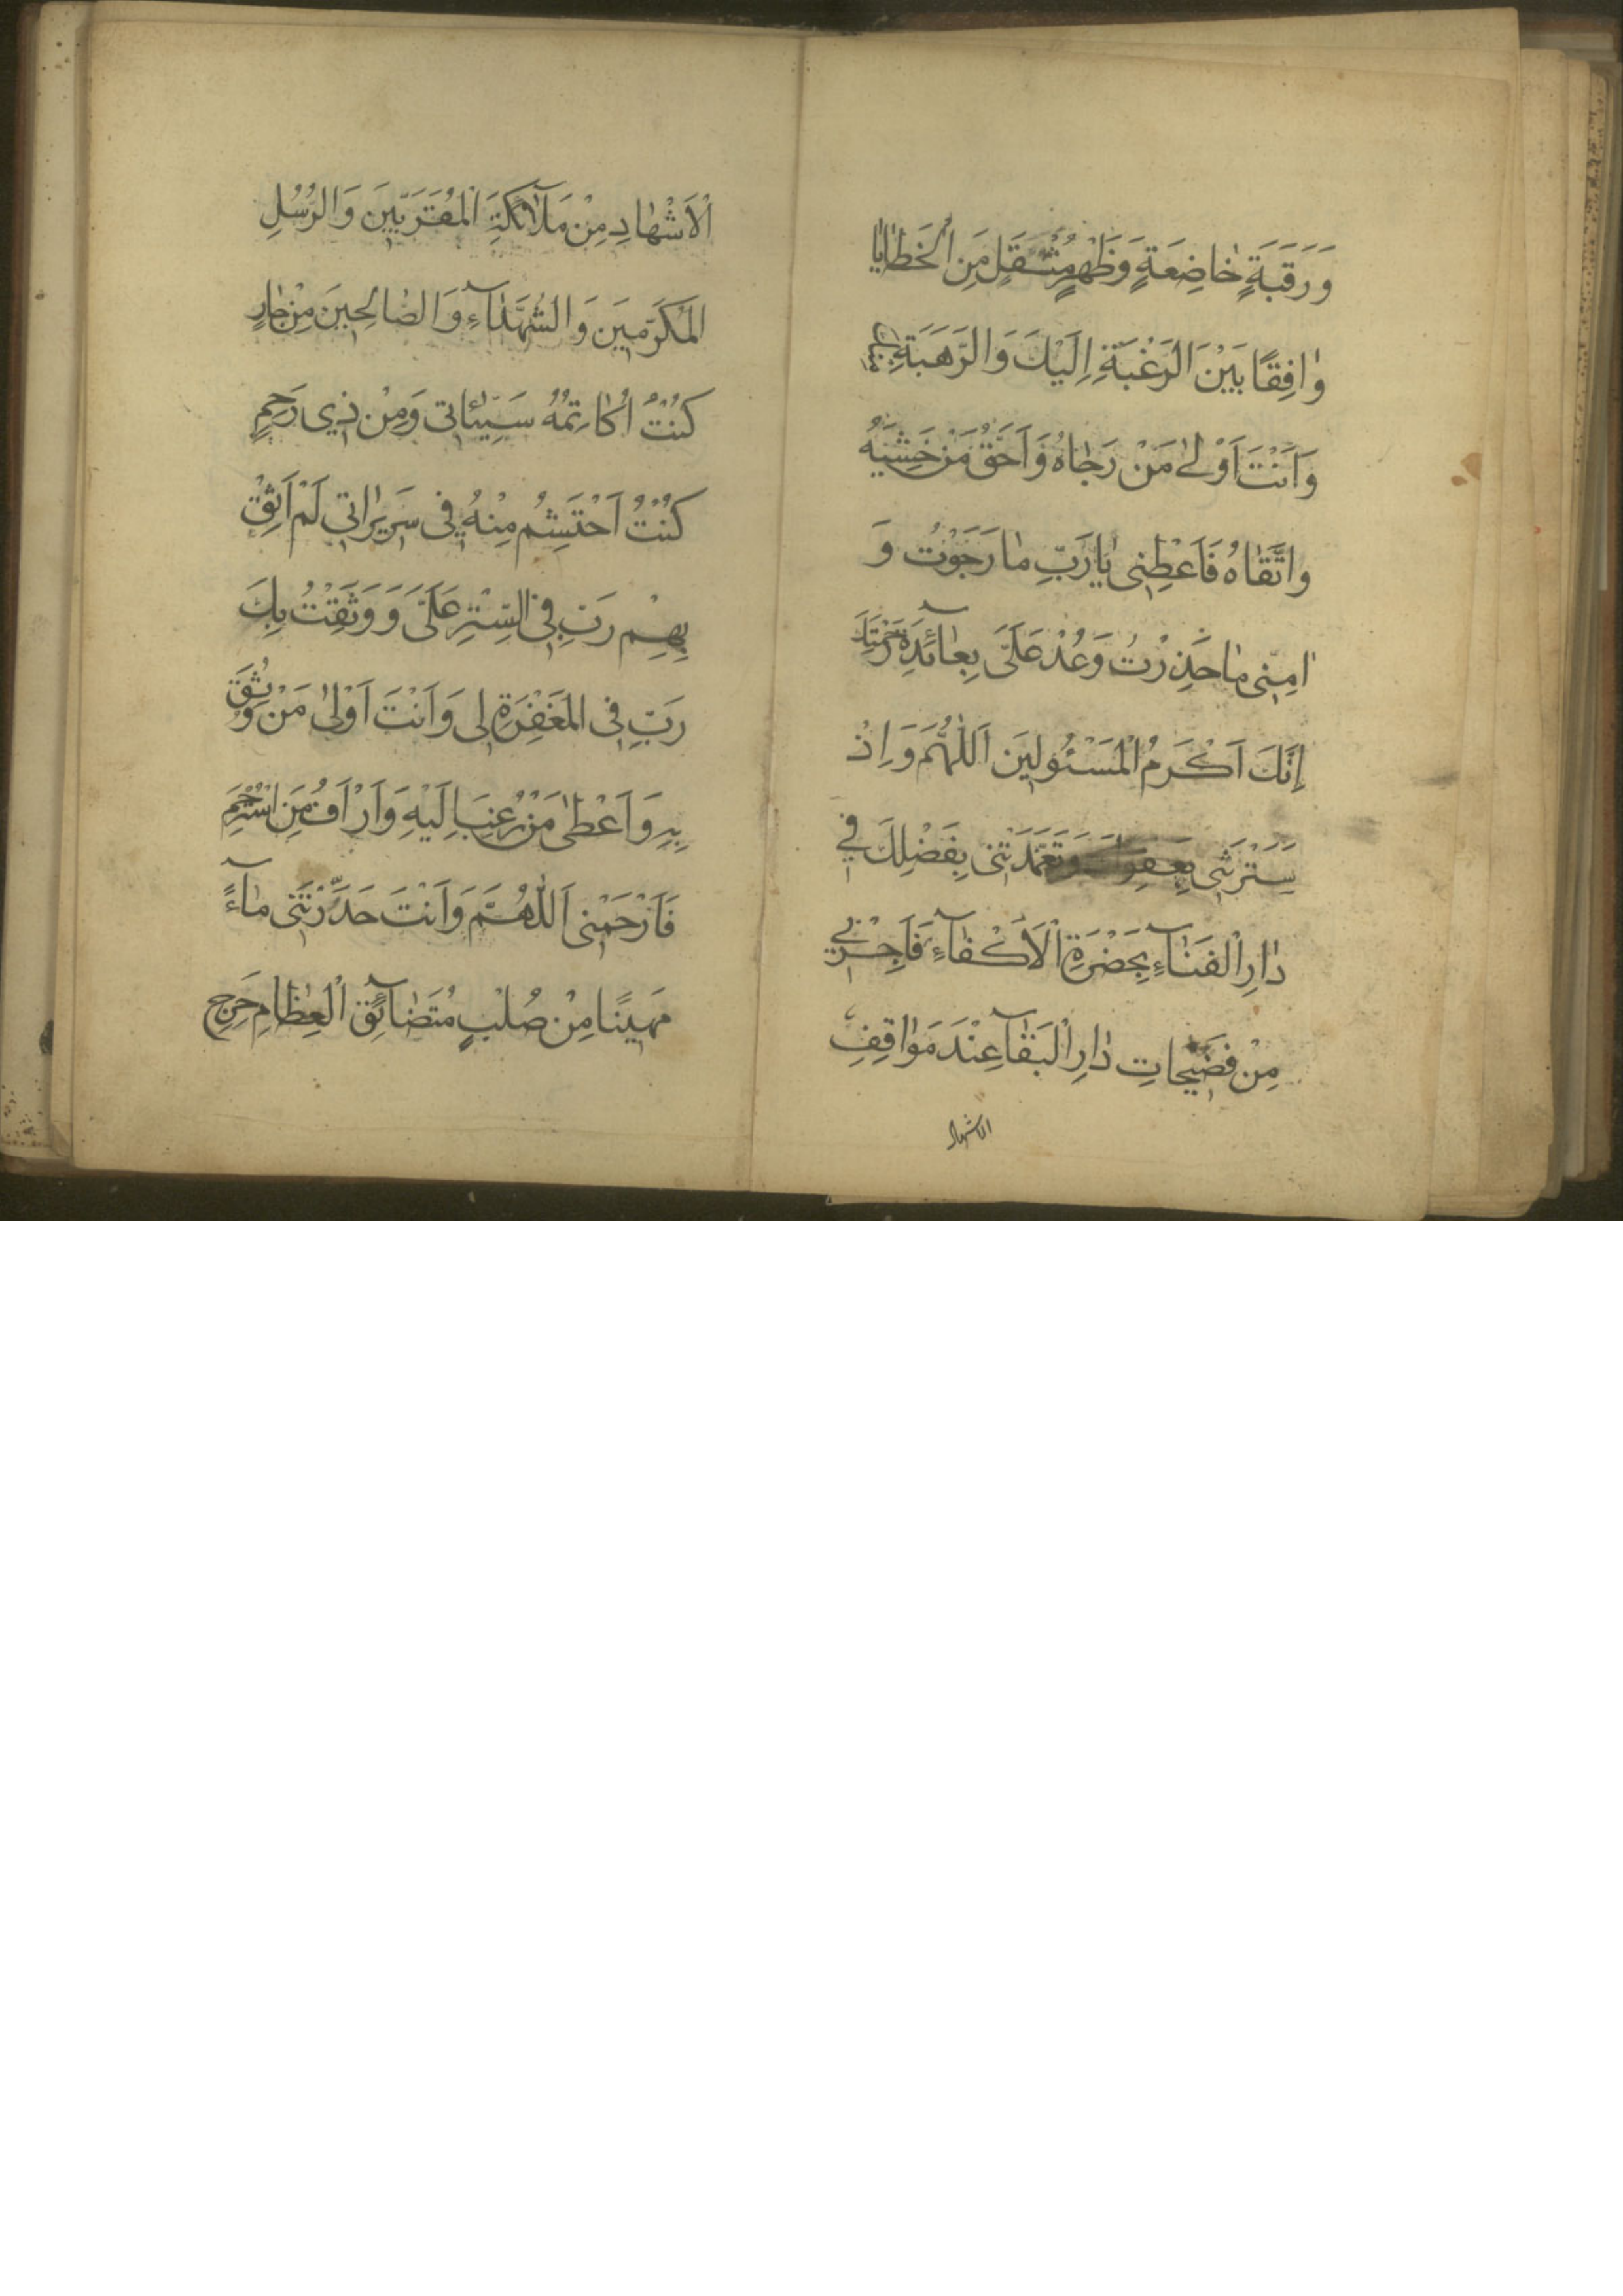 وَرَقَبَةٍ خٰاضِعَةٍ وَظَهْرٍ مُثْقَلٍ مِنَ الْخَطٰايٰا
وٰافِقًا بَيْنَ الرَغْبَةِ اِلَيْكَ وَالرَهَبَةِ
وَاَنْتَ اَوْلىٰ مَنْ رَجٰاهُ وَاَحَقُّ مَنْ خَشِيَهُ
وَاتَّقٰاهُ فَاَعْطِنى يٰا رَبِّ مٰا رَجَوْتُ وَ
اٰمِنّى مٰا حَذِرْتُ وَعُدْ عَلَىَّ بِعٰائِدَةِ رَحْمَتِكَ
اِنَّكَ اَكْرَمُ الْمَسْئُولينَ اَللّٰهُمَّ وَاِذْ
سَتَرْتَنى بِعَفوِكَ وَتَغَمَّدَتْنى بِفَضْلِكَ فى
دٰارِ الْفَنٰآءِ بِحَضْرَةِ الْاَكْفٰآءِ فَاَجِرْنى
مِنْ فَضيحٰاتِ دٰارِ الْبَقٰآ عِنْدَ مَوٰاقِفِ
الاشهاد
الْاَشْهٰادِ مِنْ مَلٰآئِكَةِ الْمُقَرَبّينَ وَالرُّسُلِ
الْمُكَرَّمينَ وَالشُهَدٰآءِ وَالصّٰالِحينَ مِنْ جٰارٍ
كُنْتُ اُكٰاتِمُهُ سَيِّئاٰتى وَمِنْ ذى رَحِمٍ
كُنْتُ اَحْتَشِمُ مِنْهُ فى سَريرٰاتى لَمْ اَثِقْ
بِهِمْ رَبِّ فِى السِّتْرِ عَلَىَّ وَ وَثِقْتُ بِكَ
رَبِّ فِى الْمَغْفِرَةِ لى وَاَنْتَ اَوْلىٰ مَنْ وُثِقَ
بِهِ وَاَعْطىٰ مَنْ رُغِبَ اِلَيْهِ وَاَرْاَفُ مَنِ اسْتُرْحِمَ
فَاَرْحَمْنى اَللّٰهُمَّ وَاَنْتَ حَدَّرْتَنى مٰآءً
مَهينًا مِنْ صُلْبٍ مُتَضٰآئِقِ الْعِظٰامِ حَرِجِ